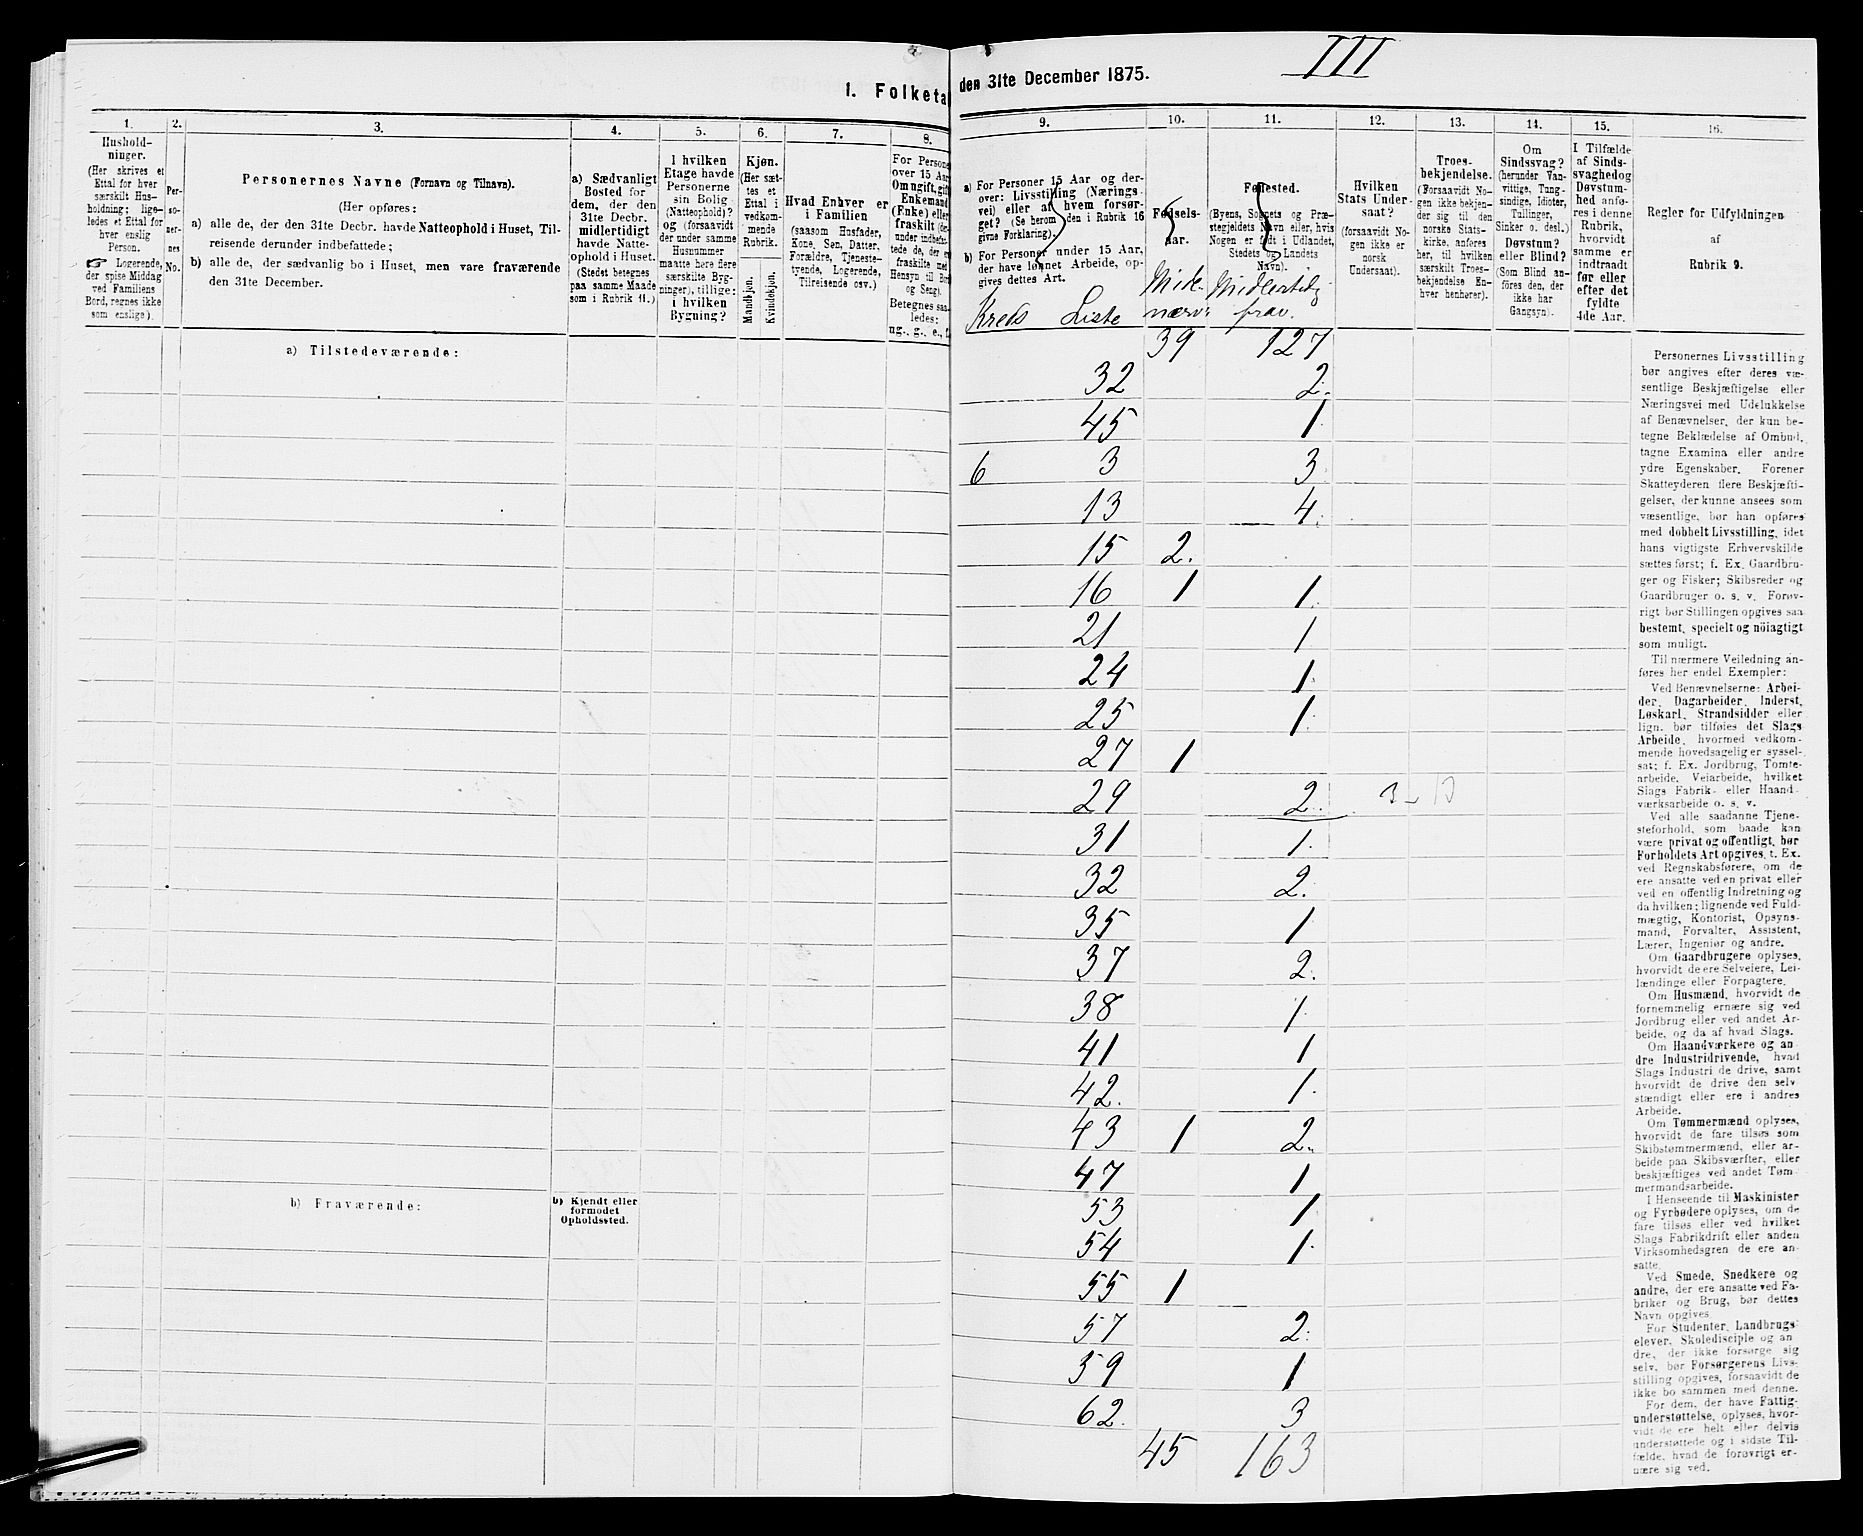 III
1. Folketa
den 31te December 1875.
1.
Hushold-
ninger.
(Her skrives et
Ettal for hver
særskilt Hus-
holdning; lige-
ledes et Ettal for
hver enslig
Person.
☞ Logerende,
der spise Middag
ved Familiens
Bord, regnes ikke
som enslige).
2.
Per-
so-
ner-
nes
No.
3.
Personernes Navne (Fornavn og Tilnavn).
(Her opføres:
a) alle de, der den 31te Decbr. havde Natteophold i Huset, Til-
reisende derunder indbefattede;
b) alle de, der sædvanlig bo i Huset, men vare fraværende
den 31te December.
4.
a) Sædvanligt
Bosted for
dem, der den
31te Decbr.
midlertidigt
havde Natte-
ophold i Huset.
(Stedet betegnes
paa samme Maade
som i Rubrik 11.)
5.
I hvilken
Etage havde
Personerne
sin Bolig
(Natteophold)?
og (forsaavidt
der under samme
Husnummer
maatte høre flere
særskilte Byg-
ninger), tillige:
i hvilken
Bygning?
6.
Kjøn.
(Her sæt-
tes et
Ettal i
vedkom-
mende
Rubrik.
Mandkjøn.
Kvindekjøn.
7.
Hvad Enhver er
i Familien
(saasom Husfader,
Kone, Søn, Datter,
Forældre, Tjeneste-
tyende, Logerende,
Tilreisende osv.)
8.
For Persone
over 15 Aar
Om ugift, gift
Enkemand
(Enke) eller
fraskilt (der-
under indbefat-
tede de, der er
fraskilte med
Hensyn til Bord
og Seng).
Betegnes saa-
ledes:
ug., g., e., f.
9.
a) For Personer 15 Aar og der-
over: Livsstilling (Nærings-
vei) eller af hvem forsør-
get? (Se herom den i Rubrik 16
givne Forklaring).
b) For Personer under 15 Aar,
der have lønnet Arbeide, op-
gives dettes Art.
10.
Fødsels-
aar.
11.
Fødested.
(Byens, Sognets og Præ-
stegjeldets Navn eller, hvis
Nogen er født i Udlandet,
Stedets og Landets
Navn).
12.
Hvilken
Stats Under-
saat?
(forsaavidt No-
gen ikke er
norsk
Undersaat).
13.
Troes-
bekjendelse.
(Forsaavidt No-
gen ikke bekjen-
der sig til den
norske Stats-
kirke, anføres
her, til hvilken
særskilt Troes-
bekjendelse En-
hver henhører).
14.
Om
Sindssvag?
(herunder Van-
vittige, Tung-
sindige, Idioter,
Tullinger,
Sinker o. desl.)
Døvstum?
eller Blind?
(Som Blind an-
føres den, der
ikke har
Gangsyn).
15.
I Tilfælde
af Sinds-
svaghed og
Døvstum-
hed anfø-
res i denne
Rubrik,
hvorvidt
samme er
indtraadt
før eller
efter det
fyldte
4de Aar.
16.
Regler for Udfyldningen
af
Rubrik 9.
Krets Liste Midl. nærv. Midlertidig frav.
a) Tilstedeværende:
39 127
32 2.
45 1
6 3 3.
13 4.
15 2.
16 1 1.
21 1
24 1.
25 1.
27 1
29 2.
31 1.
32 2.
35 1
37 2.
38 1.
41 1
42. 1.
43 1 2.
47 1
53 1
54 1.
55 1
57 2.
59 1
62. 3
45 163
b) Fraværende:
b) Kjendt eller
formodet
Opholdssted.
Personernes Livsstilling
bør angives efter deres væ-
sentlige Beskjæftigelse eller
Næringsvei med Udelukkelse
af Benævnelser, der kun be-
tegne Beklædelse af Ombud,
tagne Examina eller andre
ydre Egenskaber. Forener
Skatteyderen flere Beskjæfti-
gelser, der kunne ansees som
væsentlige, bør han opføres
med dobbelt Livsstilling, idet
hans vigtigste Erhvervskilde
sættes først; f. Ex. Gaardbru-
ger og Fisker; Skibsreder og
Gaardbruger o. s. v. Forøv-
rigt bør Stillingen opgives saa
bestemt, specielt og nöiagtigt
som muligt.
Til nærmere Veiledning an-
føres her endel Exempler:
Ved Benævnelserne: Arbei-
der, Dagarbeider, Inderst,
Løskarl, Strandsidder eller
lign. bør tilføies det Slags
Arbeide, hvormed vedkom-
mende hovedsagelig er syssel-
sat; f. Ex. Jordbrug, Tomte-
arbeide, Veiarbeide, hvilket
Slags Fabrik- eller Haand-
værksarbeide o. s. v.
Ved alle saadanne Tjene-
steforhold, som baade kan
være privat og offentligt, bør
Forholdets Art opgives, t. Ex.
ved Regnskabsførere, om de
ere ansatte ved en privat eller
ved en offentlig Indretning og
da hvilken; lignende ved Fuld-
mægtig, Kontorist, Opsyns-
mand, Forvalter, Assistent,
Lærer, Ingeniør og andre.
Om Gaardbrugere oplyses,
hvorvidt de ere Selveiere, Lei-
lændinge eller Forpagtere.
Om Husmænd, hvorvidt de
fornemmelig ernære sig ved
Jordbrug eller ved andet Ar-
beide, og da af hvad Slags.
Om Haandværkere og an
dre Industridrivende, hvad
Slags Industri de drive, samt
hvorvidt de drive den selv
stændigt eller ere i andres
Arbeide.
Om Tømmermænd oplyses,
hvorvidt de fare tilsøs som
Skibstømmermænd, eller ar-
beide paa Skibsværfter, eller
beskjæftiges ved andet Tøm
mermandsarbeide.
I Henseende til Maskinister
og Fyrbødere oplyses, om de
fare tilsøs eller ved hvilket
Slags Fabrikdrift eller anden
Virksomhedsgren de ere an-
satte.
Ved Smede, Snedkere og
andre, der ere ansatte ved Fa-
briker og Brug, bør dettes
Navn opgives.
For Studenter, Landbrugs
elever, Skoledisciple og an
dre, der ikke forsørge sig
selv, bør Forsørgerens Livs-
stilling opgives, forsaavidt de
ikke bo sammen med denne.
For dem, der have Fattig-
understøttelse, oplyses, hvor-
vidt de ere helt eller delvis
understøttede og i sidste Til-
fælde, hvad de forøvrigt er-
nære sig ved.